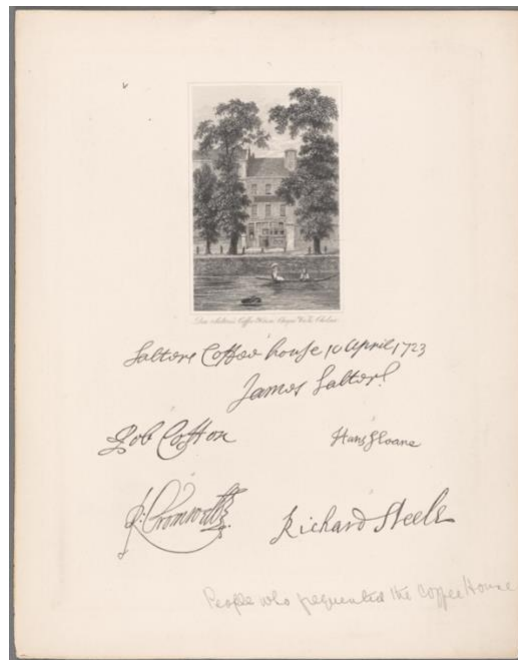 Don Saltero's Coffee House, Cheyne Walk, Chelsea
Salters Coffee house 10 April, 1723
James Salter
Rob Cotton
Hans Sloane
R: Cromwell
Richard Steele
People who frequented the Coffee House